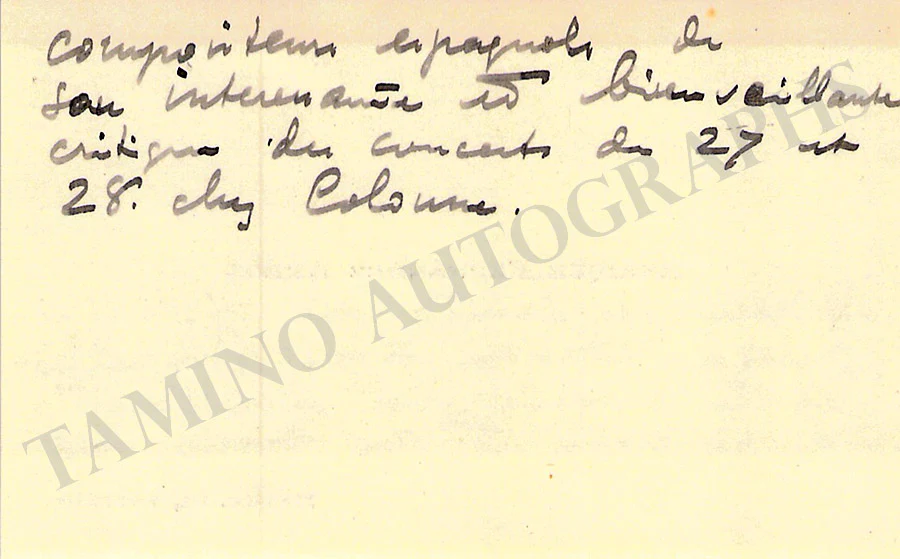 compositeurs espagnols de
son interessante et bienveillante
critique des concerts du 27 et
28. chez Colonne.
TAMINO AUTOGRAPHS